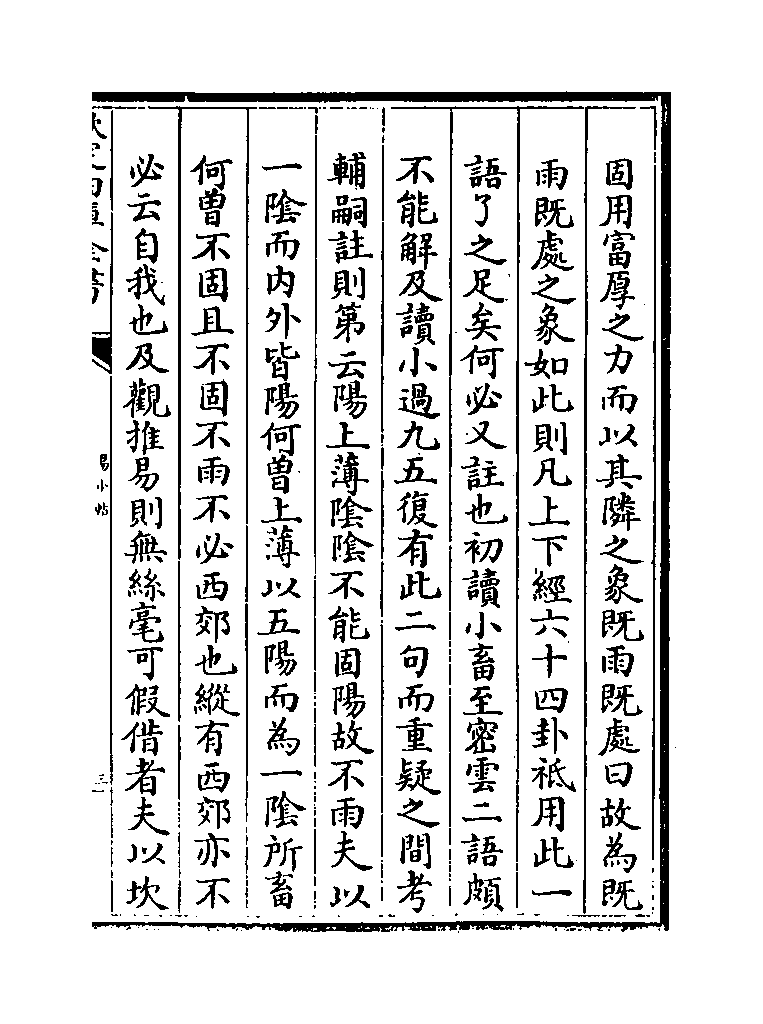 固用富厚之力而以其隣之象既雨既處曰故為既
雨既處之象如此則凡上下經六十四卦祗用此一
語了之足矣何必又註也初讀小畜至密雲二語頗
不能解及讀小過九五復有此二句而重疑之間考
輔嗣註則第云陽上薄陰陰不能固陽故不雨夫以
一陰而内外皆陽何曾上薄以五陽而為一陰所畜
何曾不固且不固不雨不必西郊也縱有西郊亦不
必云自我也及觀推易則無絲毫可假借者夫以坎
欽定四庫全書
易小帖
三